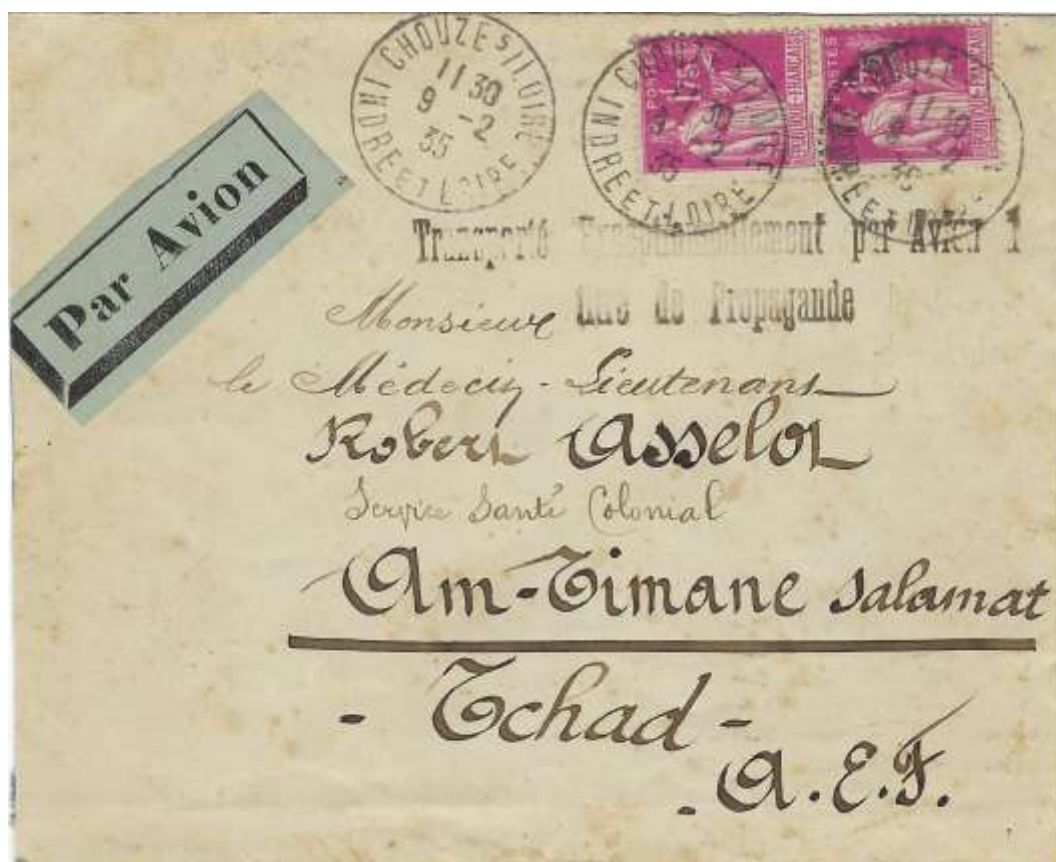 CHOUZE S/LOIRE
INDRE ET LOIRE
11 30
9 -2
35
CHOUZE S/LOIRE
INDRE ET LOIRE
POSTES
1F75
REPUBLIQUE FRANCAISE
POSTES
1F75
REPUBLIQUE FRANCAISE
Par Avion
Transporté Exceptionnellement par Avion à
titre de Propagande
Monsieur
le Médecin-Lieutenant
Robert Asselot
Service Santé Colonial
Am-Timane Salamat
- Tchad -
- A.E.F.